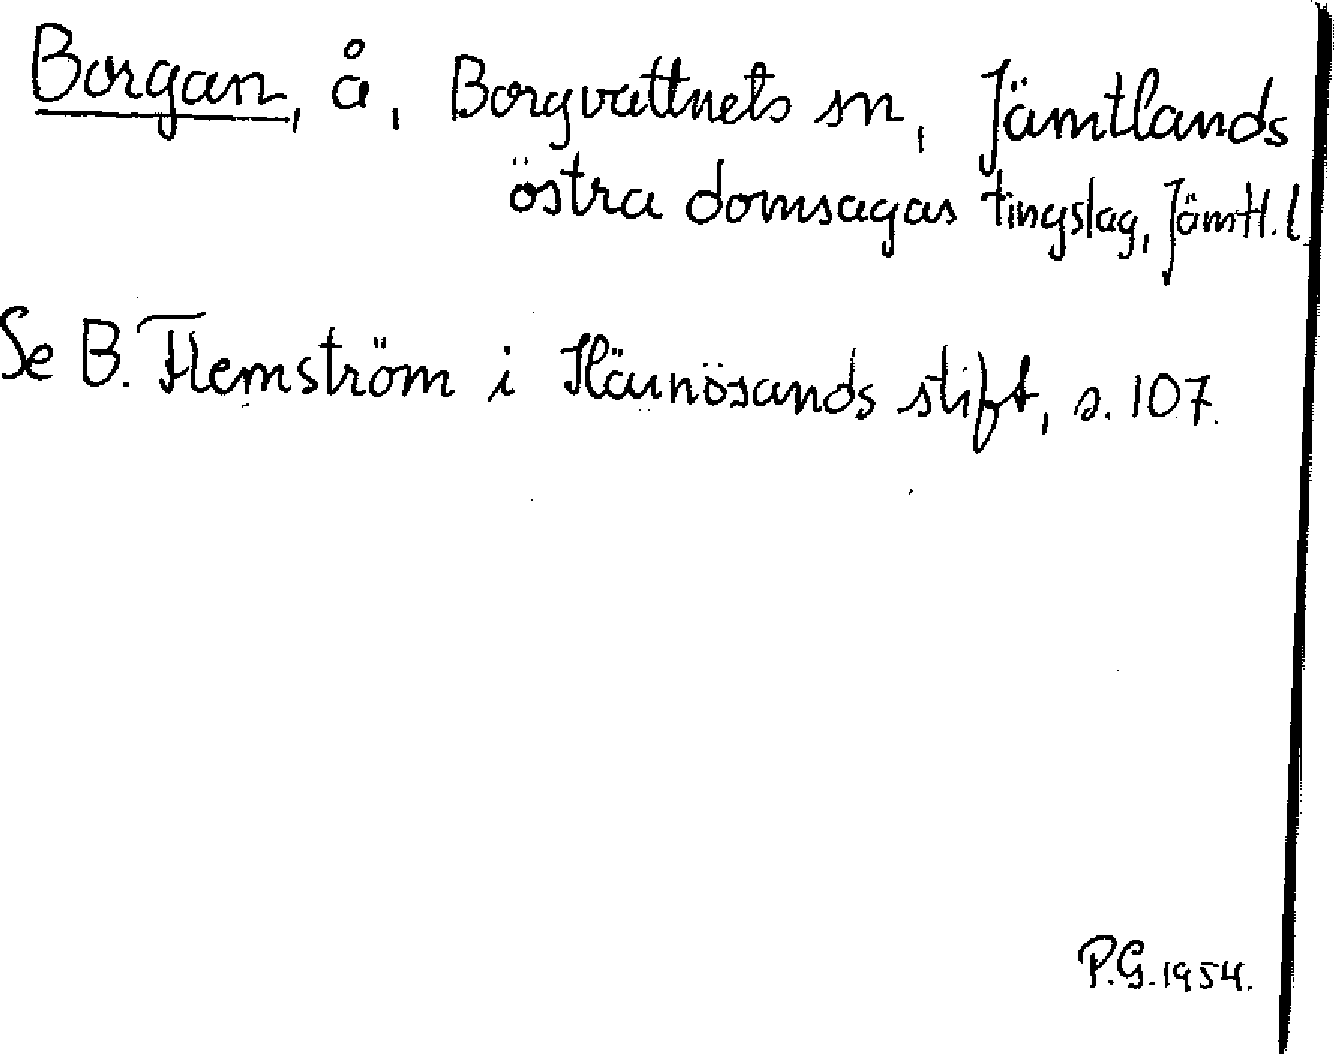 Borgan, å, Borgvattnets sn, Jämtlands
östra domsagas tingslag, Jämtl. l.
Se B. Flemström i Härnösands stift, s. 107.
P.G. 1954.